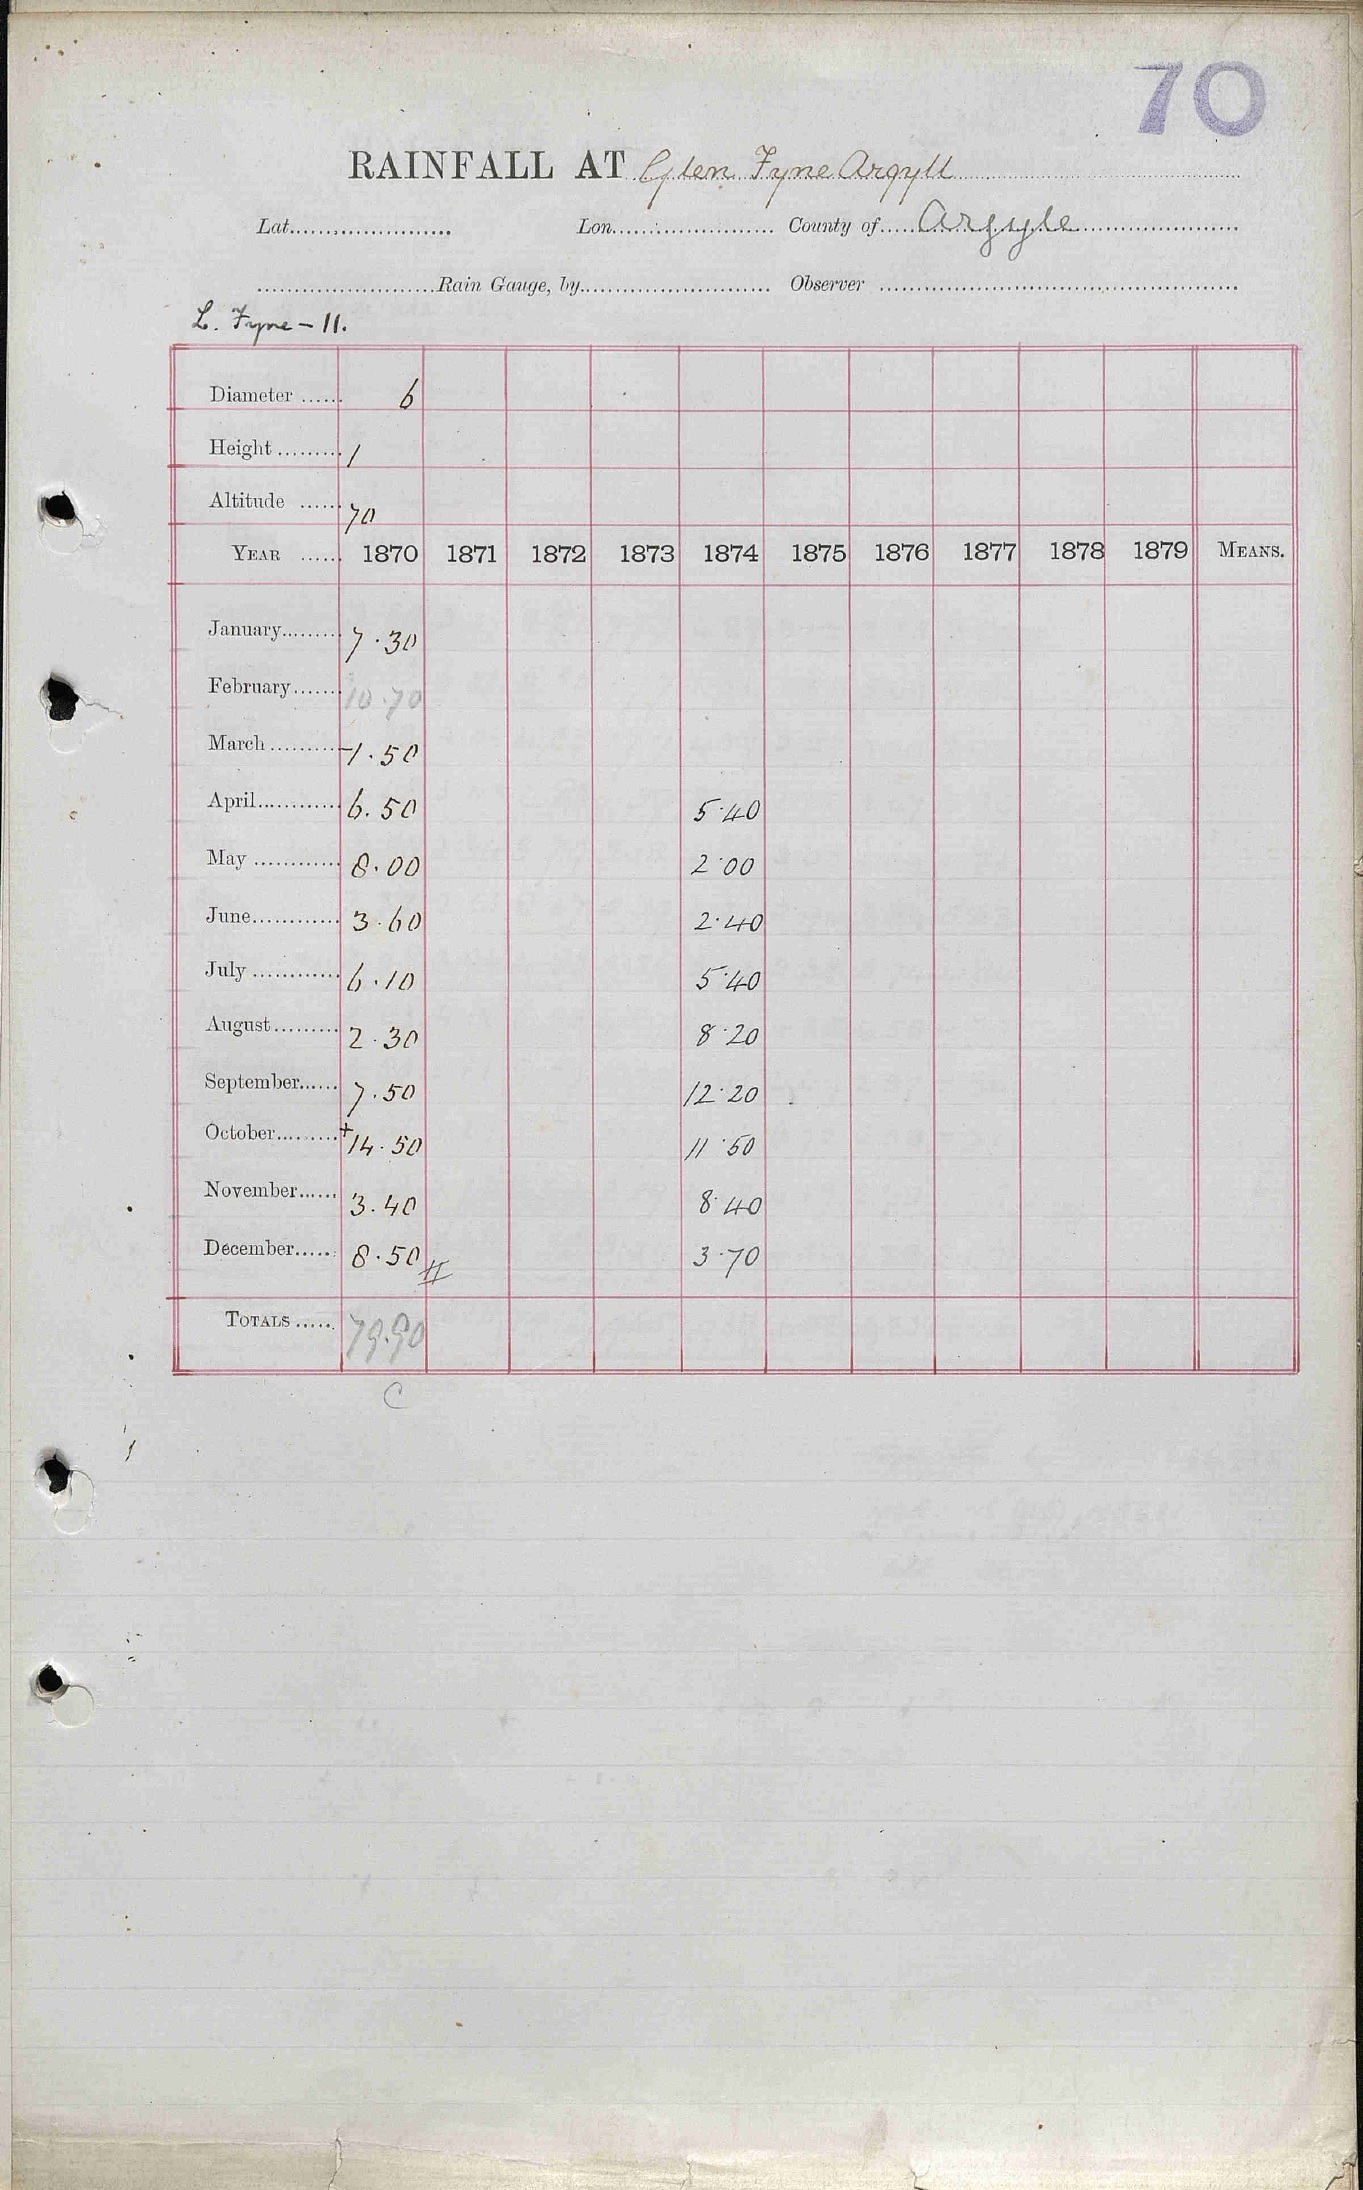 70
RAINFALL AT Glen Fyne Argyll
Lat. Lon. County of Argyle
Rain Gauge, by Observer
L. Fyne - 11.
Diameter 6
Height 1
Altitude 70
YEAR 1870 1871 1872 1873 1874 1875 1876 1877 1878 1879 MEANS.
January 7.30
February 10.70
March -1.50
April 6.50 5.40
May 8.00 2.00
June 3.60 2.40
July 6.10 5.40
August 2.30 8.20
September 7.50 12.20
October +14.50 11.50
November 3.40 8.40
December 8.50 3.70
TOTALS 79.90
C